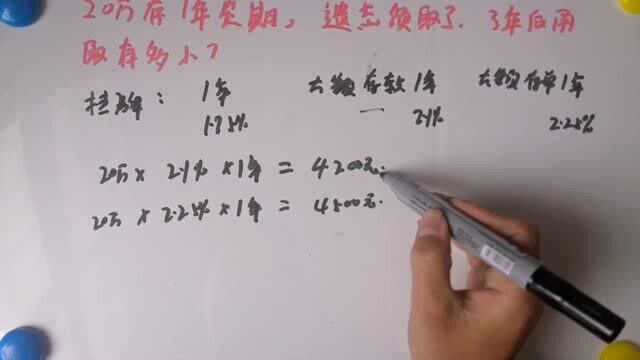 20万存1年定期，遗忘领取了.3年后用
取存多少？
挂牌： 1年 大额存款1年 大额存单1年
1.75% 一 2.1% 2.25%
20万×2.1%×1年=4200元.
20万×2.25%×1年=4500元.